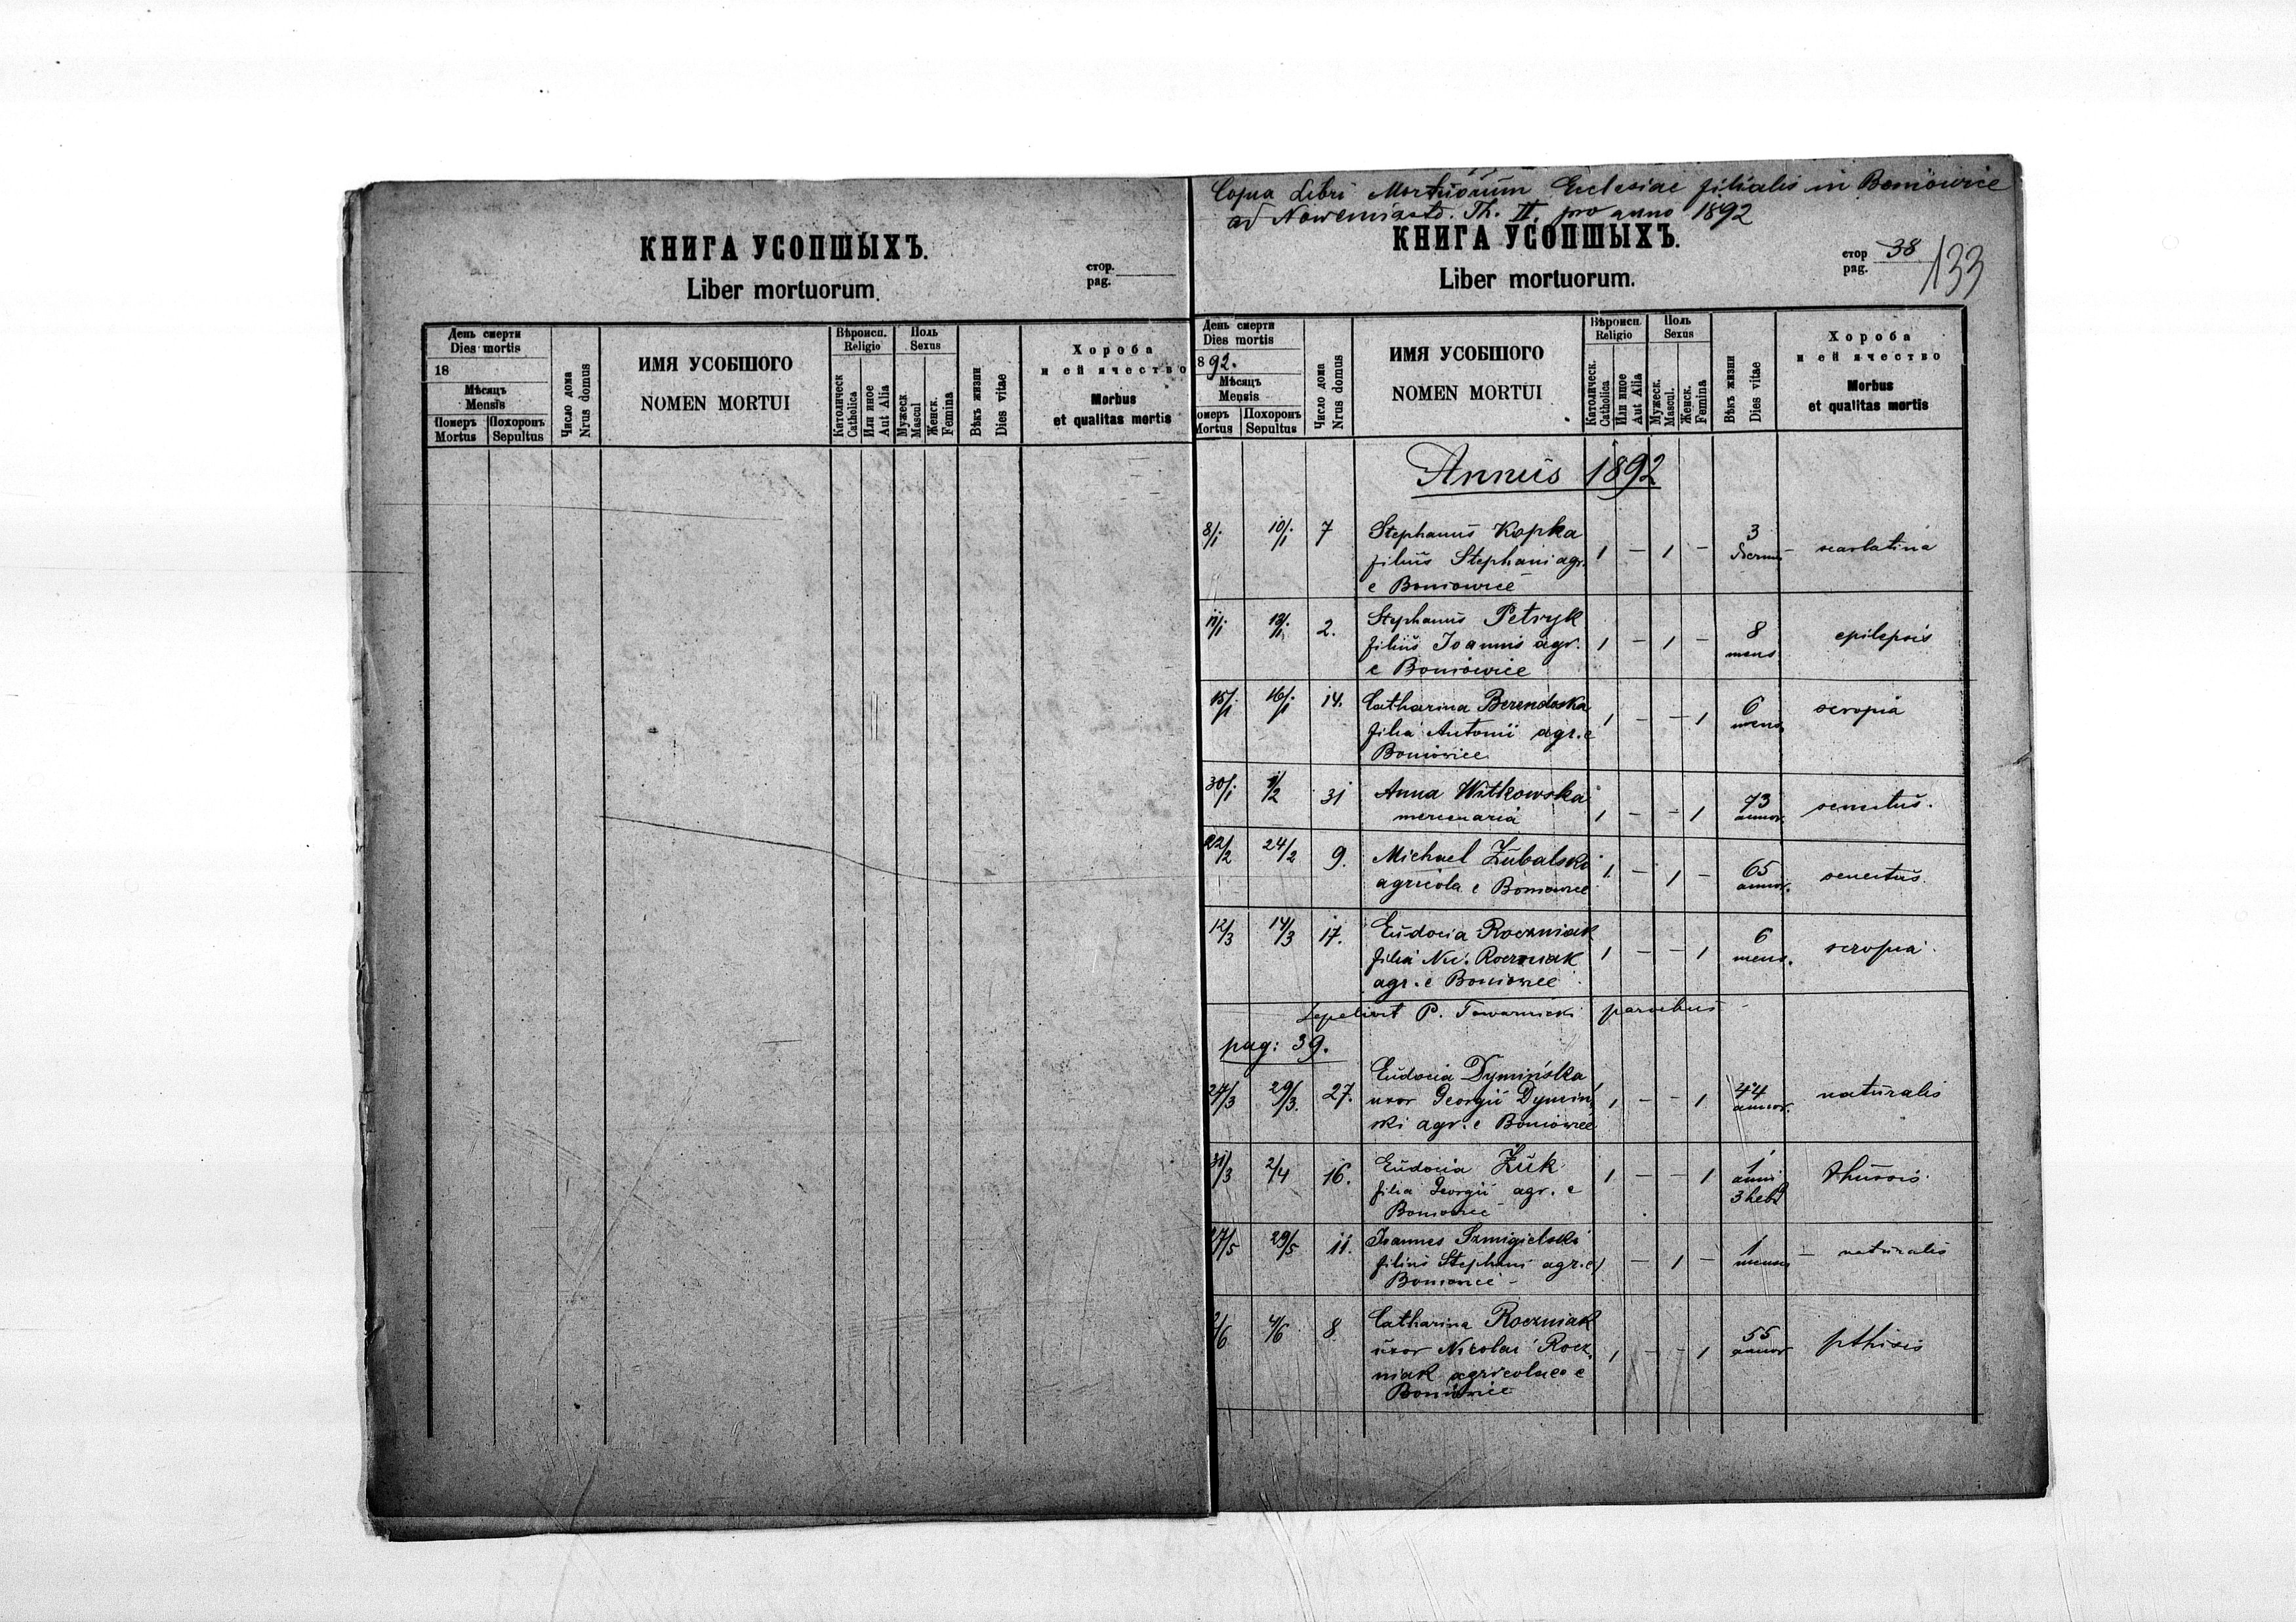 КНИГА УСОПШЫХЪ.
Liber mortuorum.
стор.
pag.
День смерти
Dies mortis
18
Мѣсяцъ
Mensis
Помeръ Похоронъ
Mortus Sepultus
Число дома
Nrus domus
ИМЯ УСОБШОГО
NOMEN MORTUI
Вѣроисп.
Religio
Католическ
Catholica
Или иное
Aut Alia
Поль
Sexus
Мужеск
Mascul
Женск.
Femina
Вѣкъ жизни
Dies vitae
Хороба
и ей ячество
Morbus
et qualitas mortis
Copia Libri Mortuorum Ecclesiae filialis in Boniowice
ad Nowemiasto. Th. II. pro anno 1892
КНИГА УСОПШЫХЪ.
Liber mortuorum.
стор
pag. 38
133
День смерти
Dies mortis
892.
Мѣсяцъ
Mensis
омеръ Похоронъ
Mortus Sepultus
Число дома
Nrus domus
ИМЯ УСОБШОГО
NOMEN MORTUI
Вѣроисп
Religio
Католическ.
Catholica
Или иное
Aut Alia
Поль
Sexus
Мужеск.
Mascul.
Женск.
Femina
Вѣкъ жизни
Dies vitae
Хороба
и ей ячество
Morbus
et qualitas mortis
Annus 1892
8/1 10/1 7 Stephanus Kopka
filius Stephani agr.
e Boniowice
1 – 1 – 3 scarlatina
11/1 13/1 2. Stephanus Petryk
filius Joannis agr.
e Boniowice
1 – 1 – 8 mens epilepsis
15/1 16/1 14. Catharina Berendoska
filia Antonii agr. e
Boniowice
1 – – 1 6 mens
30/1 1/2 31 Anna Witkowska
mercenaria
1 – – 1 73 annor. senectus.
22/2 24/2 9. Michael Żubalski
agricola e Boniowice
1 – 1 – 65 annor. senectus.
12/3 14/3 17. Eudocia Roczniak
filia Nic. Roczniak
agr. e Boniowice
1 – – 1 6 mens.
Sepelivit P. Towarnicki parochus
pag: 39.
27/3 29/3. 27. Eudocia Dymińska
uxor Georgii Dymin
ski agr. e Boniowice
1 – – 1 44 annor. naturalis
31/3 2/4 16. Eudocia Żuk
filia Georgii agr. e
Boniowice
1 – – 1 1 anni 3 hebd thussis.
27/5 29/5 11. Joannes Szmigielski
filius Stephani agr. e
Boniowice
1 – 1 – 1 mensis naturalis
2/6 4/6 8 Catharina Roczniak
uxor Nicolai Rocz
niak agricolae e
Boniowice
1 – – 1 55 annor pthisis